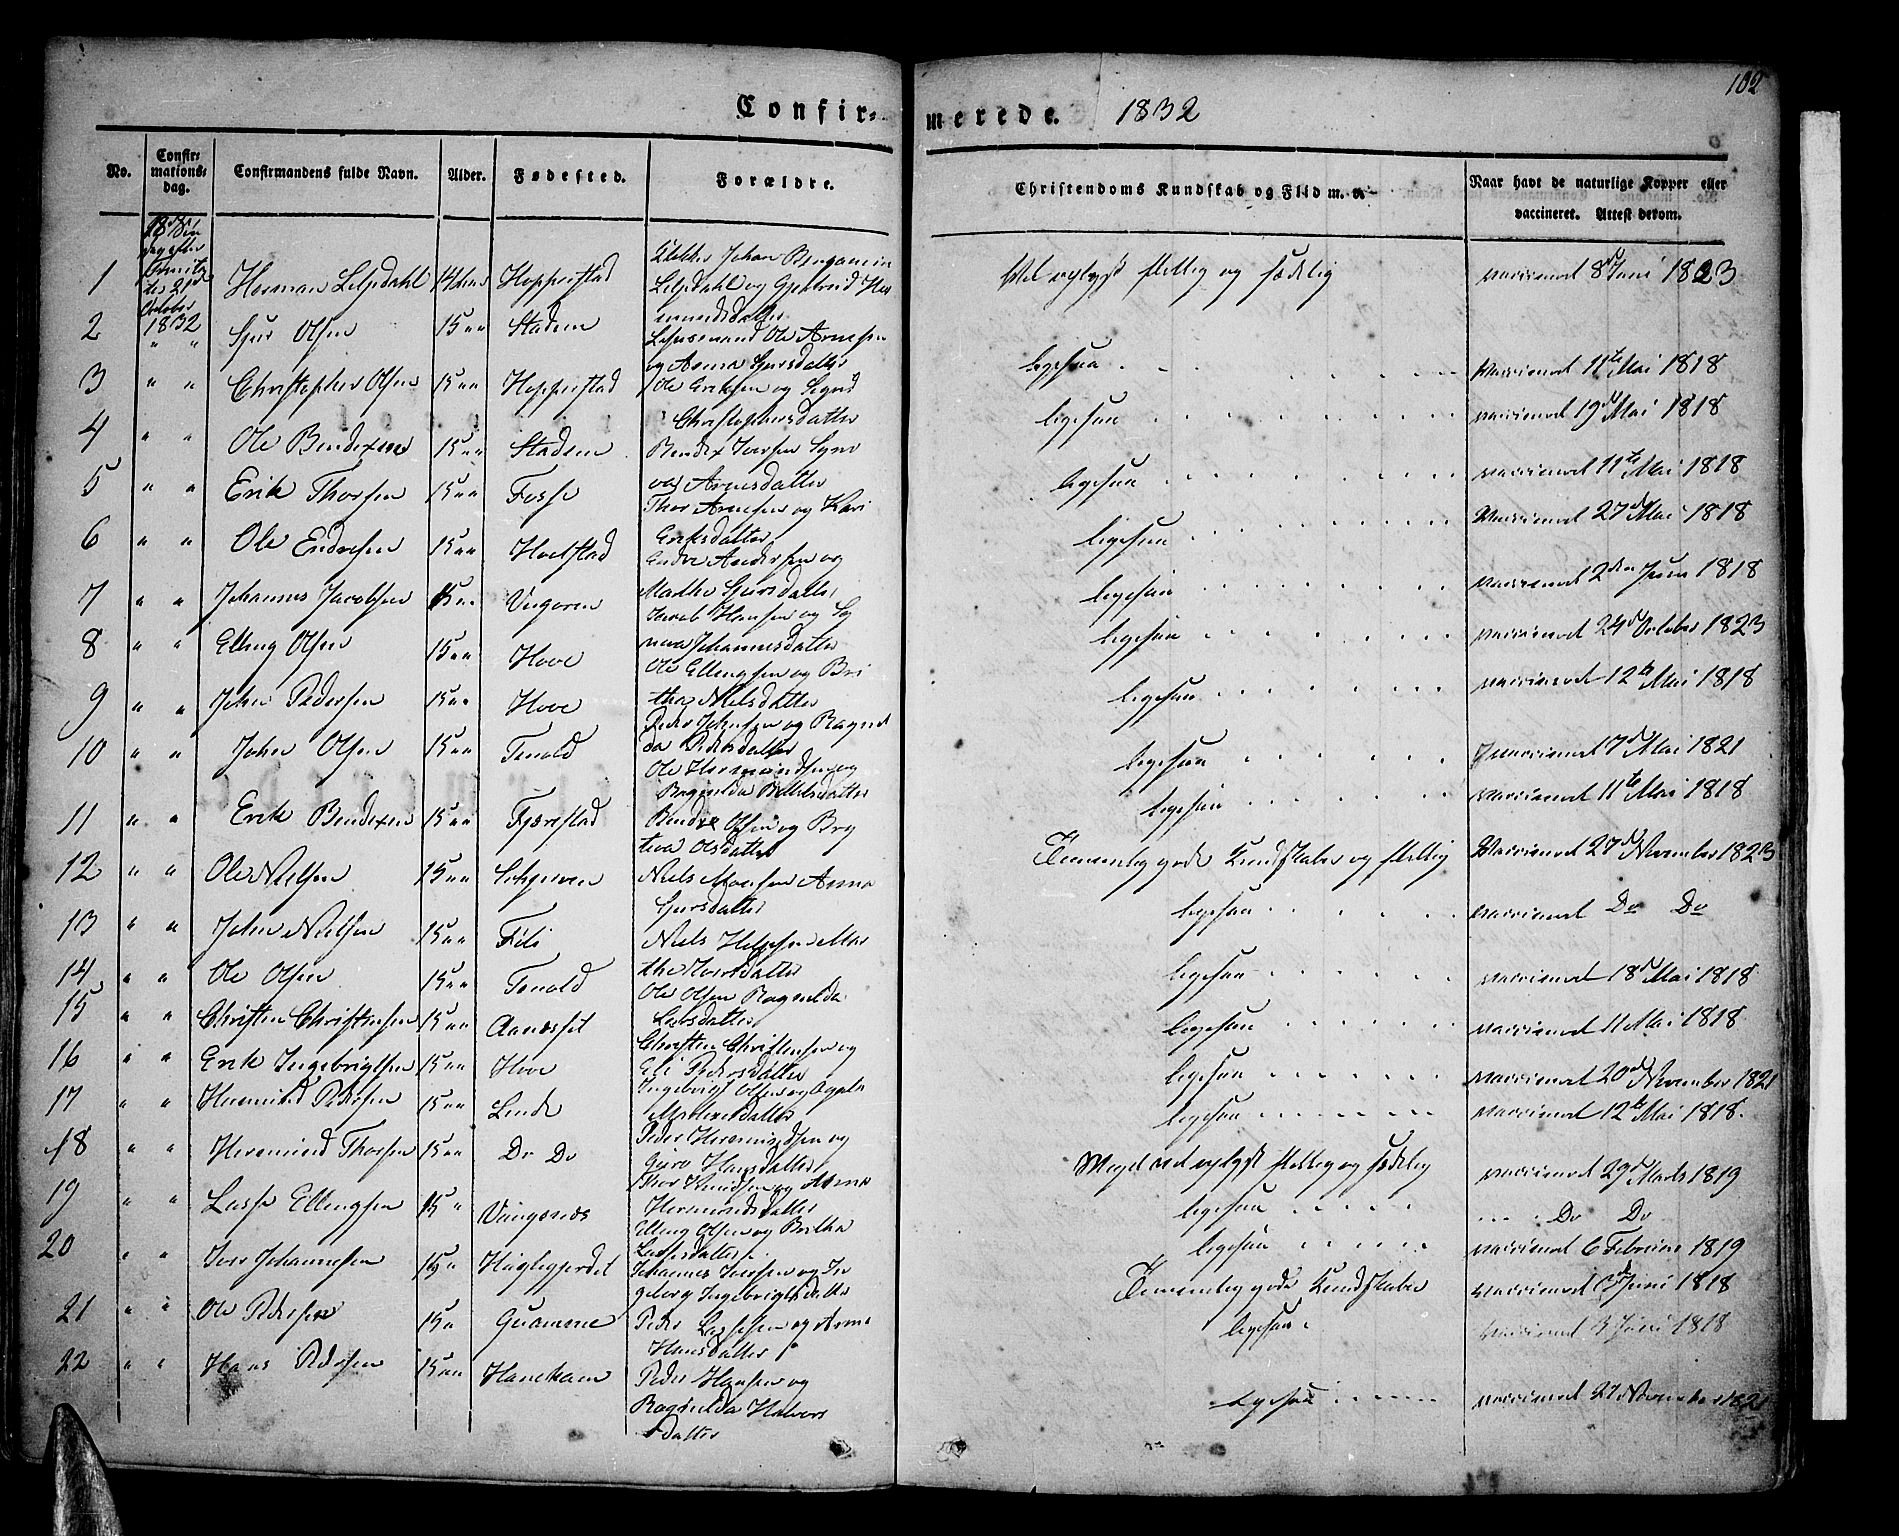 102
Confir-
merede. 1832
No.
Confir-
mations-
dag.
Confirmandens fulde Navn.
Alder.
Fødested.
Forældre.
Christendoms Kundskab og Flid m. v.
Naar havt de naturlige Kopper eller
vaccineret. Attest derom.
October
1832
1 Herman Leljedahl 14 Hopperstad Johan Benjamin
Leljedahl og
Vel oplyst flittig og sædelig vaccineret 8de Juni 1823
2 " " Sjur Olsen 15 Stadem Ole Arnesen
og Anna Sjursdatter
ligesaa vaccineret 11te Mai 1818
3 " " Christopher Olsen 15 Hopperstad Ole Eriksen og Sigrid
Christophersdatter
ligesaa vaccineret 19de Mai 1818
4 " " Ole Bendixen 15 Stadem Bendix Iversen Syn
va Arnesdatter
ligesaa vaccineret 11te Mai 1818
5 " " Erik Thorsen 15 Fosse Thor Arnesen og Kari
Eriksdatter
ligesaa Vaccineret 27de Mai 1818
6 " " Ole Endresen 15 Hoelstad Endre Andersen og
Marthe Sjursdatter
ligesaa vaccineret 2den Juni 1818
7 " " Johannes Jacobsen 15 Vigøren Jacob Hansen og Sy
neva Johannesdatter
ligesaa vaccineret 24de October 1823
8 " " Elling Olsen 15 Hove Ole Ellingsen og Bri
tha Nielsdatter
ligesaa vaccineret 12te Mai 1818
9 " " John Pedersen 15 Hove Peder Johnsen og Ragnil
da Pedersdatter
ligesaa vaccineret 17de Mai 1821
10 " " John Olsen 15 Tenold Ole Hermundsen og
Ragnilda
ligesaa vaccineret 11te Mai 1818
11 " " Erik Bendixen 15 Fjærestad Bendix Olsen og Bry
teva Olsdatter
Temmelig gode Kundskaber og flittig Vaccineret 27de November 1823
12 " " Ole Nielsen 15 Niels Monsen Anna
Sjursdatter
ligesaa vaccineret Do Do
13 " " John Nielsen 15 Feli Niels Helgesen Mar
the Iversdatter
ligesaa vaccineret 18de Mai 1818
14 " " Ole Olsen 15 Tenold Ole Olsen Ragnilda
Larsdatter
ligesaa vaccineret 11 Mai 1818
15 " " Christen Christensen 15 Aandsset Christen Christensen og
Eli Pedersdatter
ligesaa vaccineret 20de November 1821
16 " " Erik Ingebrigtsen 15 Hove Ingebrigt Olsen og
ligesaa vaccineret 12te Mai 1818.
17 " " Hermund Pedersen 15 Linde Peder Hermundsen og
Guro Hansdatter
Meget vel oplyst flittig og sædelig vaccineret 29de Marts 1819
18 " " Hermund Thorsen 15 Do Do Thor Knudsen og Anna
Hermundsdatter
ligesaa Do Do
19 " " Lasse Ellingsen 15 Vangsnæs Elling Olsen og Britha
Lassesdatter
ligesaa vaccineret 6 Februar 1819
20 " " Iver Johannesen 15 Haglegjerdet Johannes Iversen og In
geborg Ingebrigtsdatter
Temmelig gode Kundskaber vaccineret Juni 1818
21 " " Ole Pedersen 15 Qvamme Peder Lassesen og Anna
Hansdatter
ligesaa vaccineret Juni 1818
22 " " Hans Pedersen 15 Hanekam Peder Hansen og
Ragnilda Halvors
datter
ligesaa vaccineret 27 November 1821